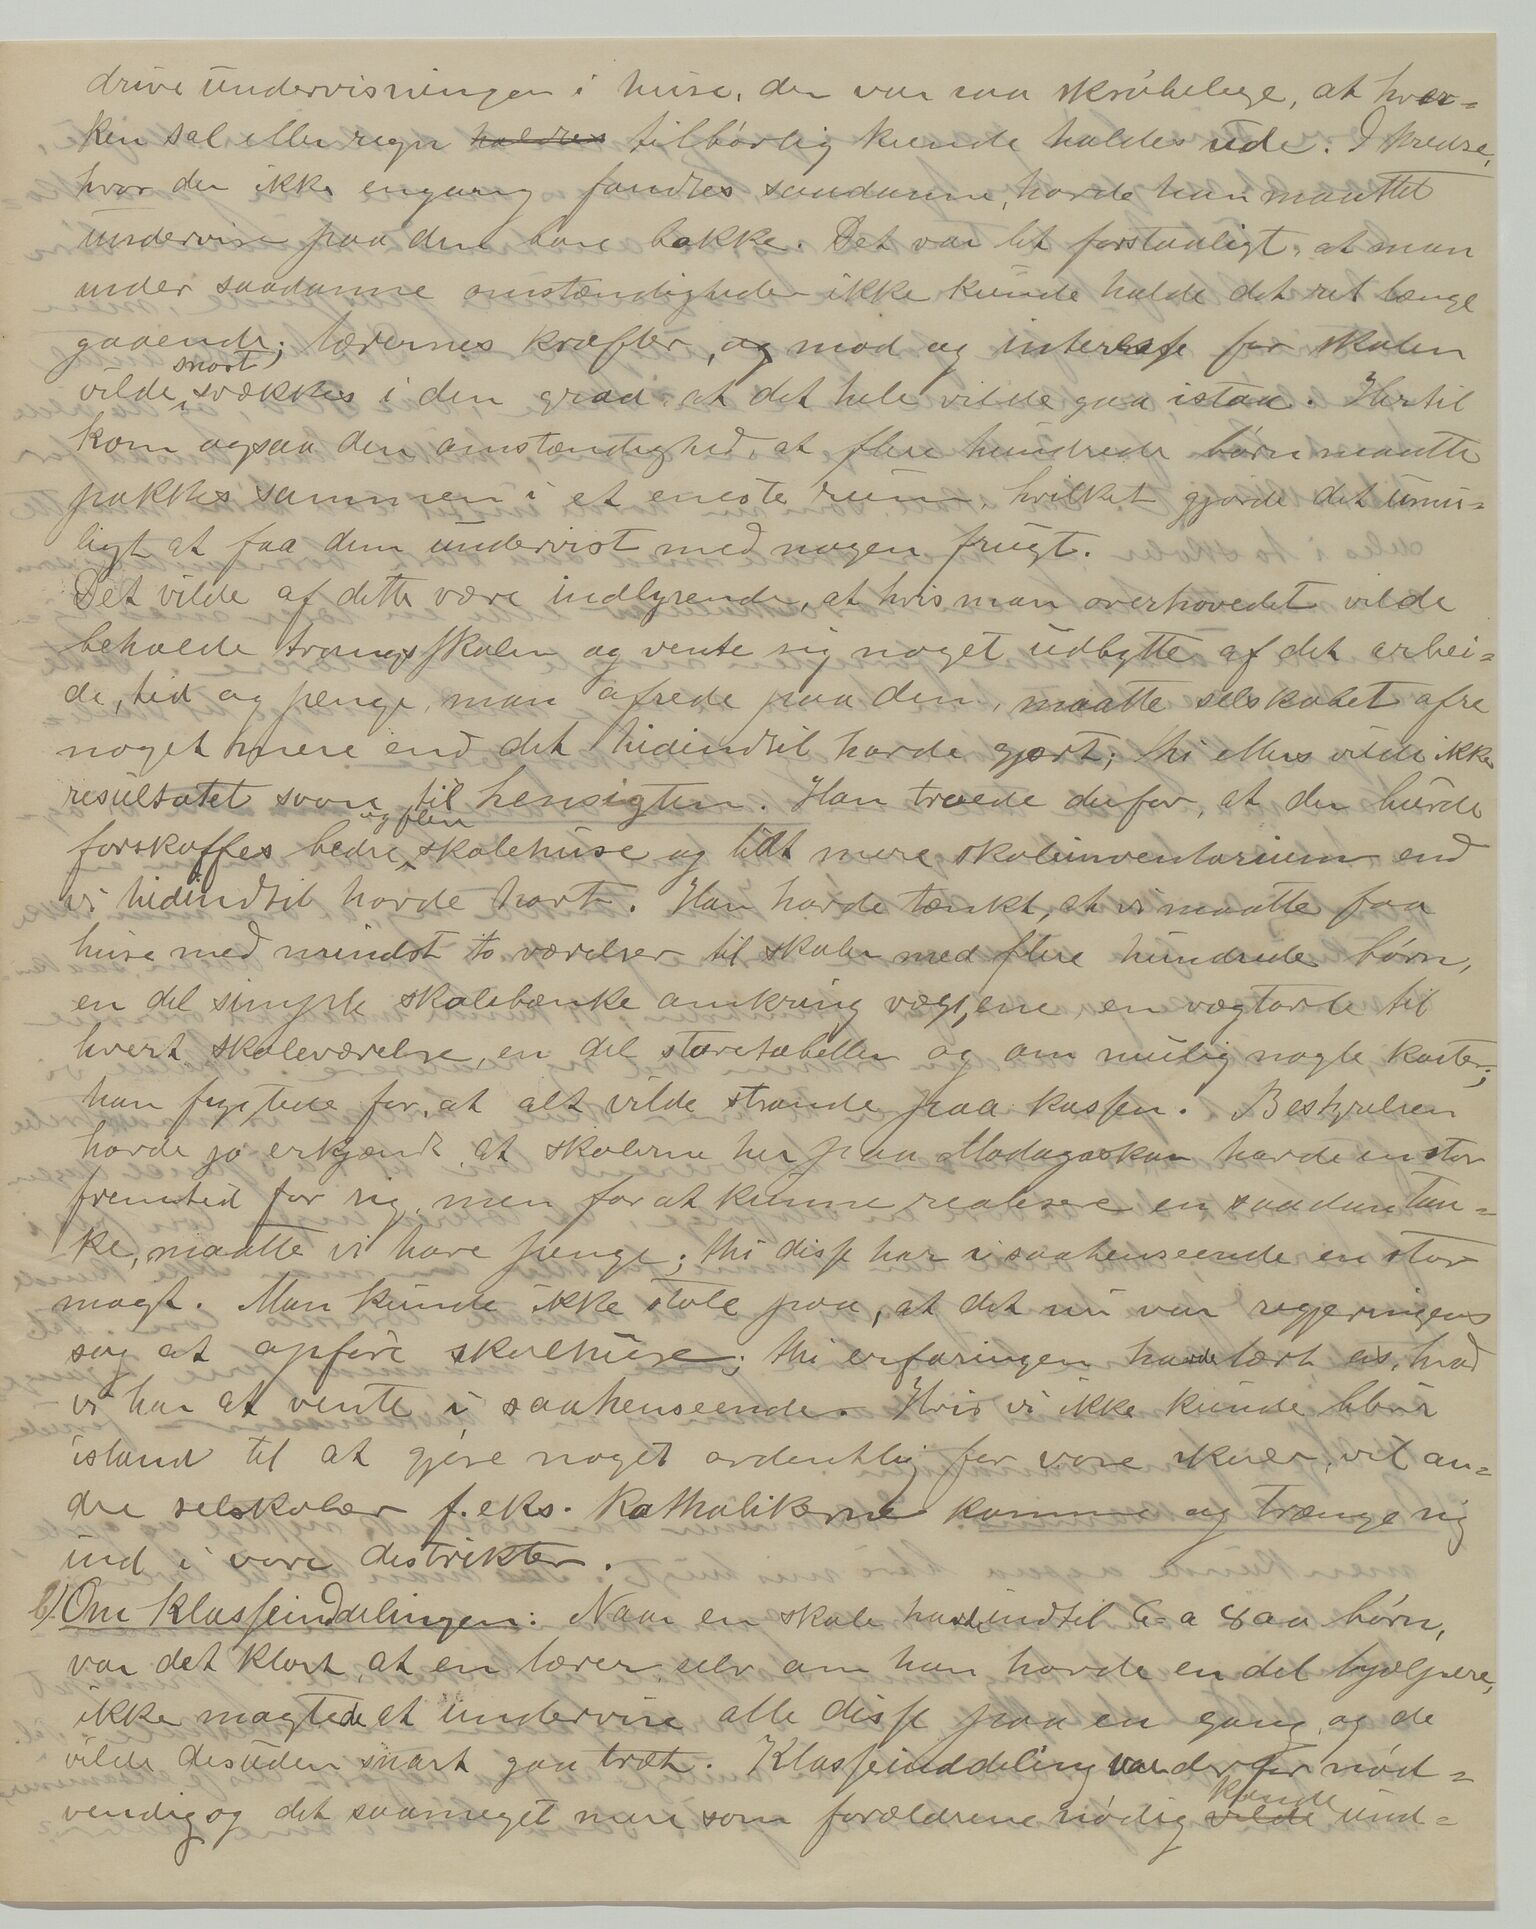 drive undervisningen i huse, der var saa skrøbelige, at hver-
ken sol eller regn holdtes tilbørlig kunde holdes ude. I kredse,
hvor der ikke engang fandtes saadanne, havde han maattet
undervise paa den bare bakke. Det var let forstaaligt, at man
under saadanne omstændigheder ikke kunde holde det ret længe
gaaende; lærernes kræfter, og mod og interesse for skolen
snart
vilde svækkes i den grad, at det hele vilde gaa istaa. Hertil
kom ogsaa den omstændighed, at flere hundrede børn maatte
pakkes sammen i et eneste rum, hvilket gjorde det umu-
ligt at faa dem undervist med nogen frugt.
Det vilde af dette være indlysende, at hvis man overhovedet vilde
beholde tvangsskolen og vente sig noget udbytte af det arbei-
de, tid og penge, man ofrede paa den, maatte selskabet ofre
noget mere end det hidindtil havde gjort; thi ellers vilde ikke
resultatet svare til hensigten. Han troede derfor, at der burde
og flere
forskaffes bedre skolehuse og lidt mere skoleinventarium end
vi hidindtil havde havt. Han havde tænkt, at vi maatte faa
huse med mindst to værelser til skoler med flere hundrede børn,
en del simple skolebænke omkring væggene, en vægtavle til
hvert skoleværelse, en del stavetabeller og om mulig nogle karter;
han frygtede for, at alt vilde strande paa kassen. Bestyrelsen
havde jo erkjendt, at skolerne her paa Madagaskar havde en stor
fremtid for sig, men for at kunne realisere en saadan tan-
ke, maatte vi have penge; thi disse har i saahenseende en stor
magt. Man kunde ikke stole paa, at det nu var regjeringens
sag at opføre skolehuse; thi erfaringen havde lært os, hvad
vi har at vente i saahenseende. Hvis vi ikke kunde blive
istand til at gjøre noget ordentlig for vore skoler, vil an-
dre selskaber f. eks. katholikerne komme og trænge sig
ind i vore distrikter.
b) Om klasseinddelingen: Naar en skole havde indtil 6 a 800 børn,
var det klart, at en lærer, selv om han havde en del hjælpere,
ikke magtede at undervise alle disse paa en gang, og de
vilde desuden snart gaa træt. Klasseinddeling var derfor nød-
kunde
vendig og det saameget mere som forældrene nødig vilde und-